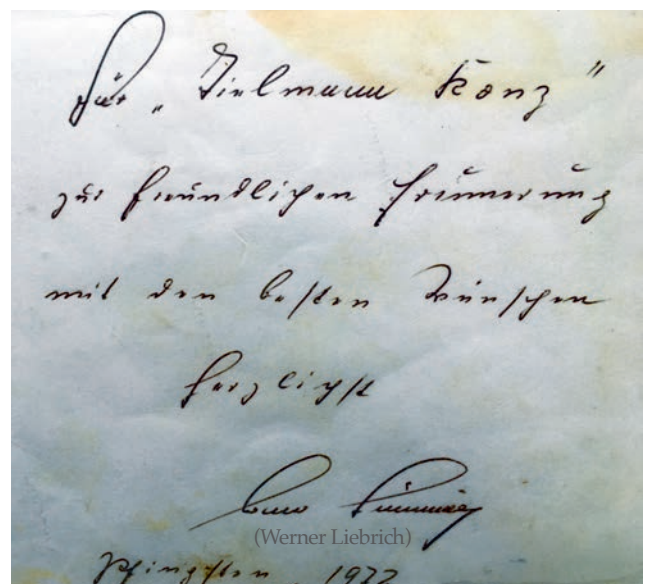 Für „Tielmann Konz“
zur freundlichen Erinnerung
mit den besten Wünschen
herzlichst
(Werner Liebrich)
Pfingsten 1977